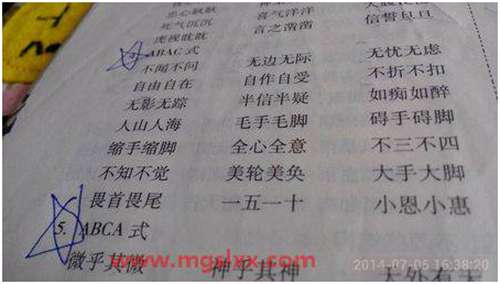 死气沉沉 喜气洋洋
虎视眈眈 言之凿凿 信誓旦旦
ABAC 式
不闻不问 无边无际 无忧无虑
自由自在 自作自受 不折不扣
无影无踪 半信半疑 如痴如醉
人山人海 毛手毛脚 碍手碍脚
缩手缩脚 全心全意 不三不四
不知不觉 美轮美奂 大手大脚
畏首畏尾 一五一十 小恩小惠
5. ABCA 式
微乎其微 神乎其神 天外有天
www.mgslxx.com
2014-07-05 16:38:20